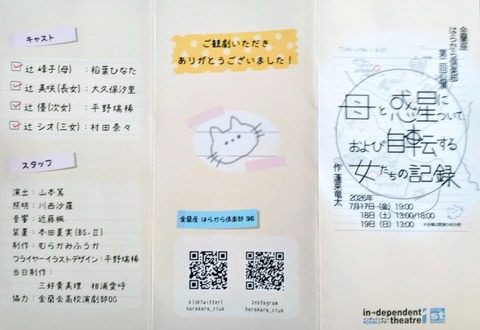 キャスト
辻 峰子(母) : 稲葉ひなた
辻 美咲(長女) : 大久保沙里
辻 優(次女) : 平野瑞稀
辻 シオ(三女) : 村田奈々
スタッフ
演出 : 山本篤
照明 : 川西沙羅
音響 : 近藤楓
装置 : 本田夏実(BS-Ⅱ)
制作 : むらかみふうか
フライヤーイラストデザイン : 平野瑞稀
当日制作 :
三好貴美理 相浦愛呼
協力 : 金蘭会高校演劇部OG
ご観劇いただき
ありがとうございました!
金蘭座 はらから倶楽部 SNS
X(旧Twitter)
harakara_club
Instagram
harakara_club
金蘭座
はらから倶楽部
第二回公演
母と惑星について、
および自転する
女たちの記録
作 蓬莱竜太
2026年
7月17日(金) 19:00
18日(土) 13:00/18:00
19日(日) 13:00
in→dependent
theatre 1st